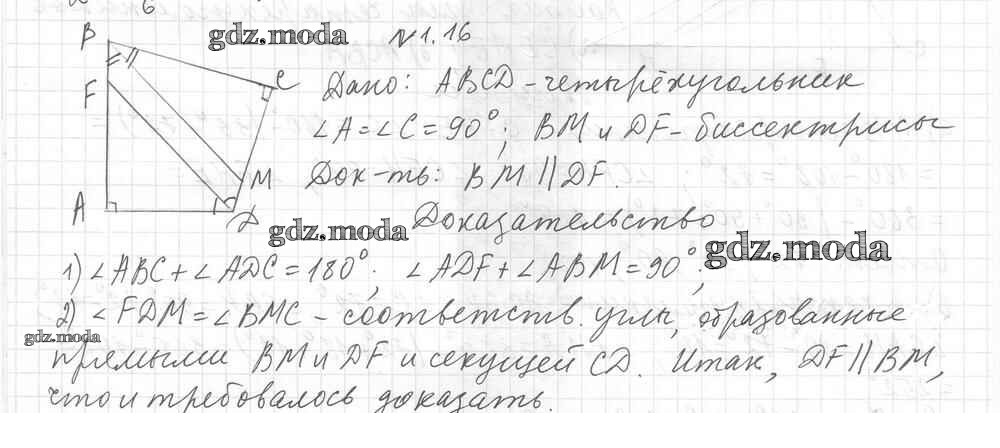 6
gdz.moda
№1.16
B
F
C
M
A
D
Дано: ABCD - четырёхугольник
∠A = ∠C = 90°; BM и DF - биссектрисы
Док-ть: BM || DF.
gdz.moda
Доказательство
gdz.moda
1) ∠ABC + ∠ADC = 180°; ∠ADF + ∠ABM = 90°;
2) ∠FDM = ∠BMC - соответств. углы, образованные
gdz.moda
прямыми BM и DF и секущей CD. Итак, DF || BM,
что и требовалось доказать.